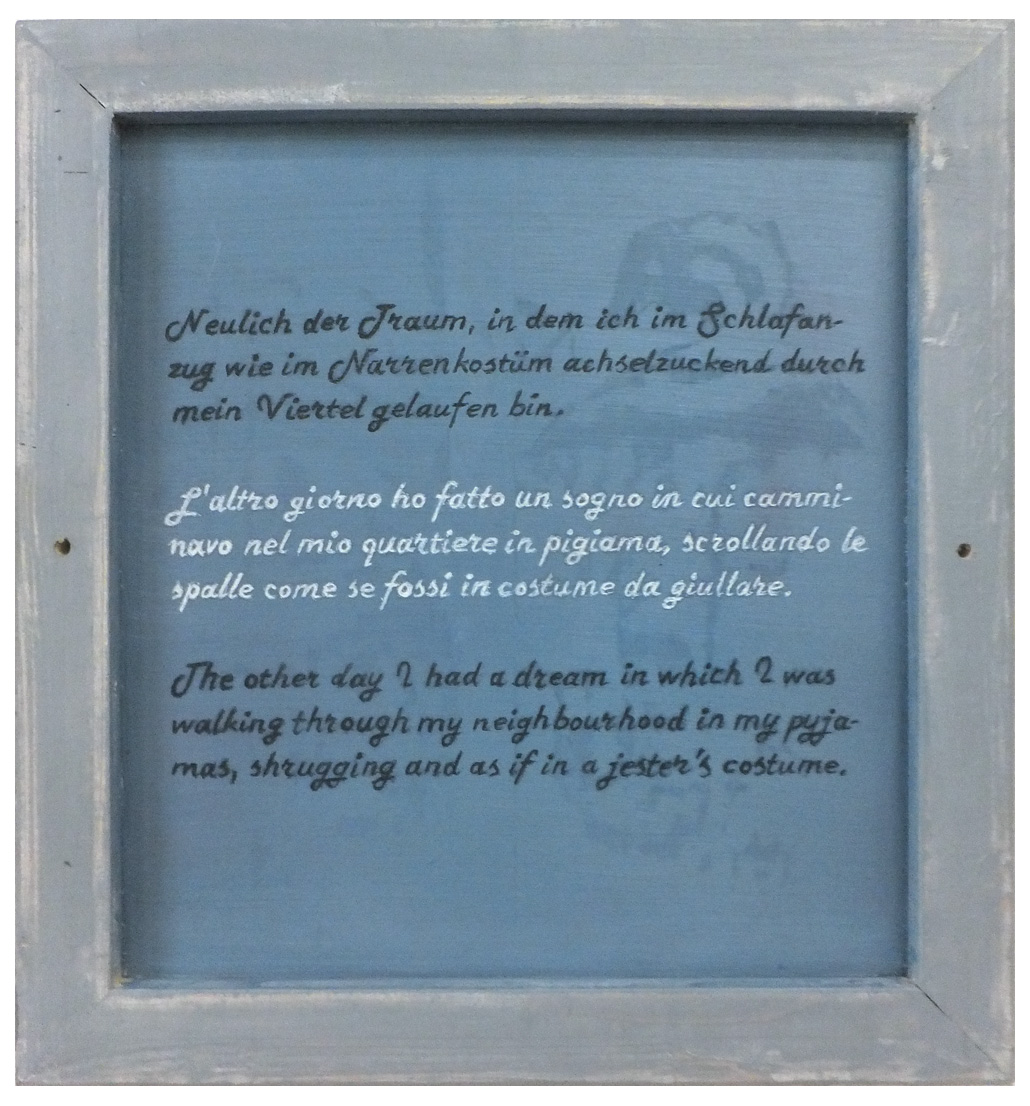 Neulich der Traum, in dem ich im Schlafan-
zug wie im Narrenkostüm achselzuckend durch
mein Viertel gelaufen bin.
L'altro giorno ho fatto un sogno in cui cammi-
navo nel mio quartiere in pigiama, scrollando le
spalle come se fossi in costume da giullare.
The other day I had a dream in which I was
walking through my neighbourhood in my pyja-
mas, shrugging and as if in a jester's costume.